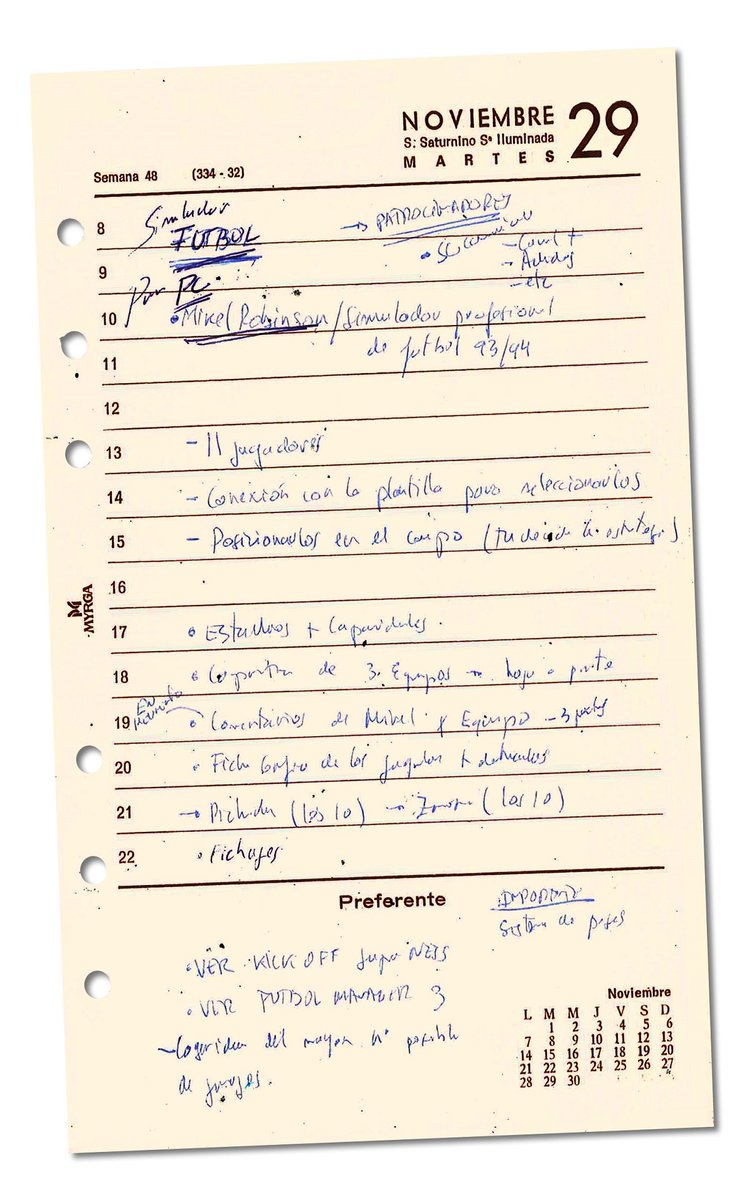 NOVIEMBRE 29
S: Saturnino Sª Iluminada
MARTES
Semana 48 (334 - 32)
8 Simulador → PATROCINADORES
FUTBOL
- Canal +
9 - Adidas
Para PC - etc
10 • Mikel Robinson/Simulador profesional
de futbol 93/94
11
12
13 - 11 jugadores
14 - Conexión con la plantilla para seleccionarlos
15 - Posicionarlos en el campo (tu decides la estrategia)
MYRGA
16
17 • Estadios + Capacidades.
18 • de 3 Equipos
EN
19 • Comentarios de Mikel y Equipo
20 • Ficha de los
21 → Pichichi (los 10) → Zamora (los 10)
22 • Fichajes
Preferente
IMPORTANTE
Sistema de pases
• VER KICK OFF Super NES
• VER FUTBOL MANAGER 3
del mayor nº posible
de juegos.
Noviembre
L M M J V S D
1 2 3 4 5 6
7 8 9 10 11 12 13
14 15 16 17 18 19 20
21 22 23 24 25 26 27
28 29 30